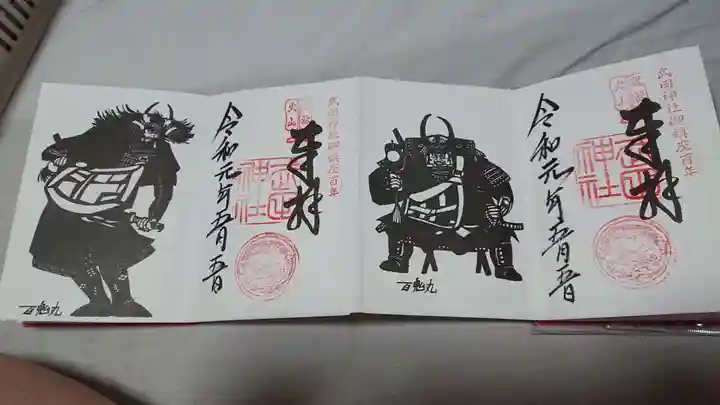 百鬼丸
令和元年五月五日
奉拝
武田神社
武田神社御鎮座百年
百鬼丸
令和元年五月五日
奉拝
武田神社
武田神社御鎮座百年